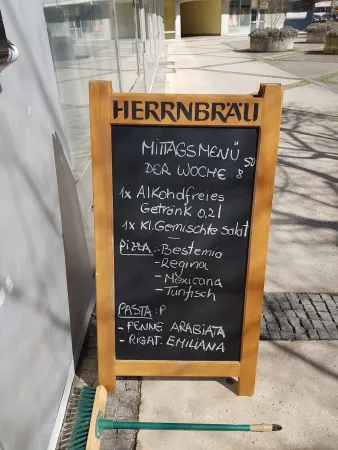 HERRNBRÄU
MITTAGSMENÜ
DER WOCHE 8 50
1x Alkoholfreies
Getränk 0,2l
1x Kl. Gemischte Salat
PIZZA:- Bestemia
- Regina
- Mexicana
- Tunfisch
PASTA:P
- PENNE ARABIATA
- RIGAT. EMILIANA